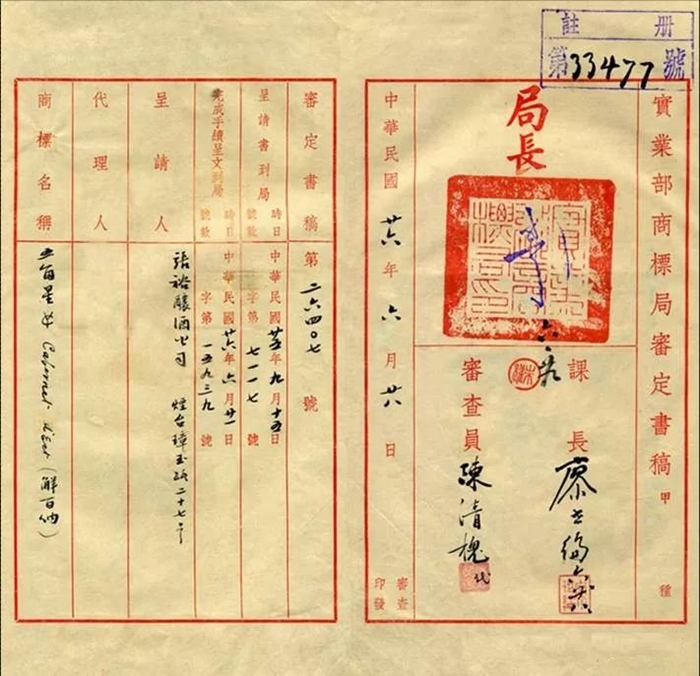 註冊
第33477號
實業部商標局審定書稿 甲種
局長
課長
審查員 陳清槐 代
中華民國廿六年六月廿八日
審查印發
審定書稿 第二六四〇七號
呈請書到局 時日 中華民國廿五年九月十五日
號數 字第七一一七號
完成手續呈文到局 時日 中華民國廿六年六月廿一日
號數 字第一五九三九號
呈請人 張裕釀酒公司 煙台璋玉路二十七號
代理人
商標名稱 五角星 Cabernet (解百納)